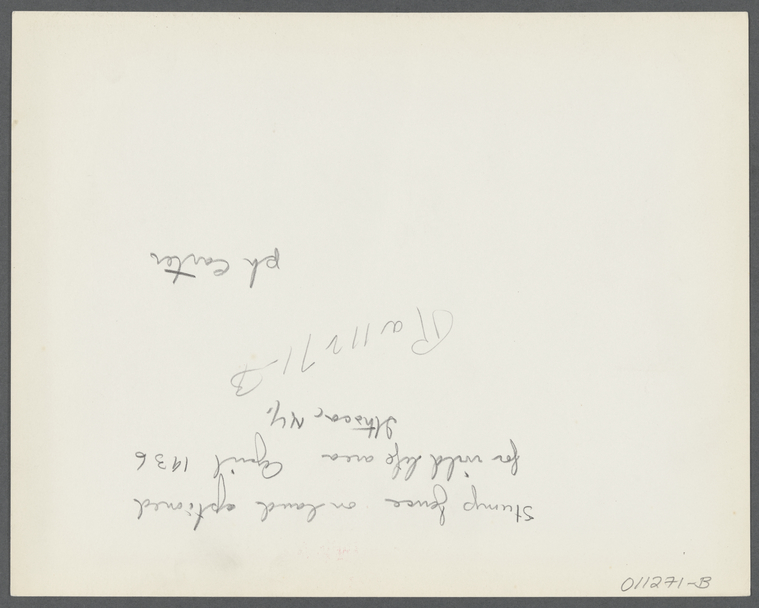 Stump fence on land optioned
for wild life area April 1936
Ithaca, N.Y.
Ra 11271-B
ph Carter
011271-B